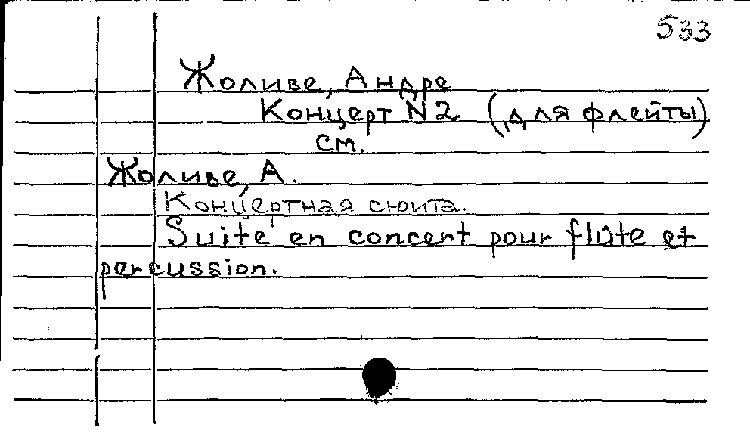 533
Жоливе, Андре
Концерт N2 (для флейты)
см.
Жоливе, А.
Концертная сюита.
Suite en concert pour flûte et
percussion.